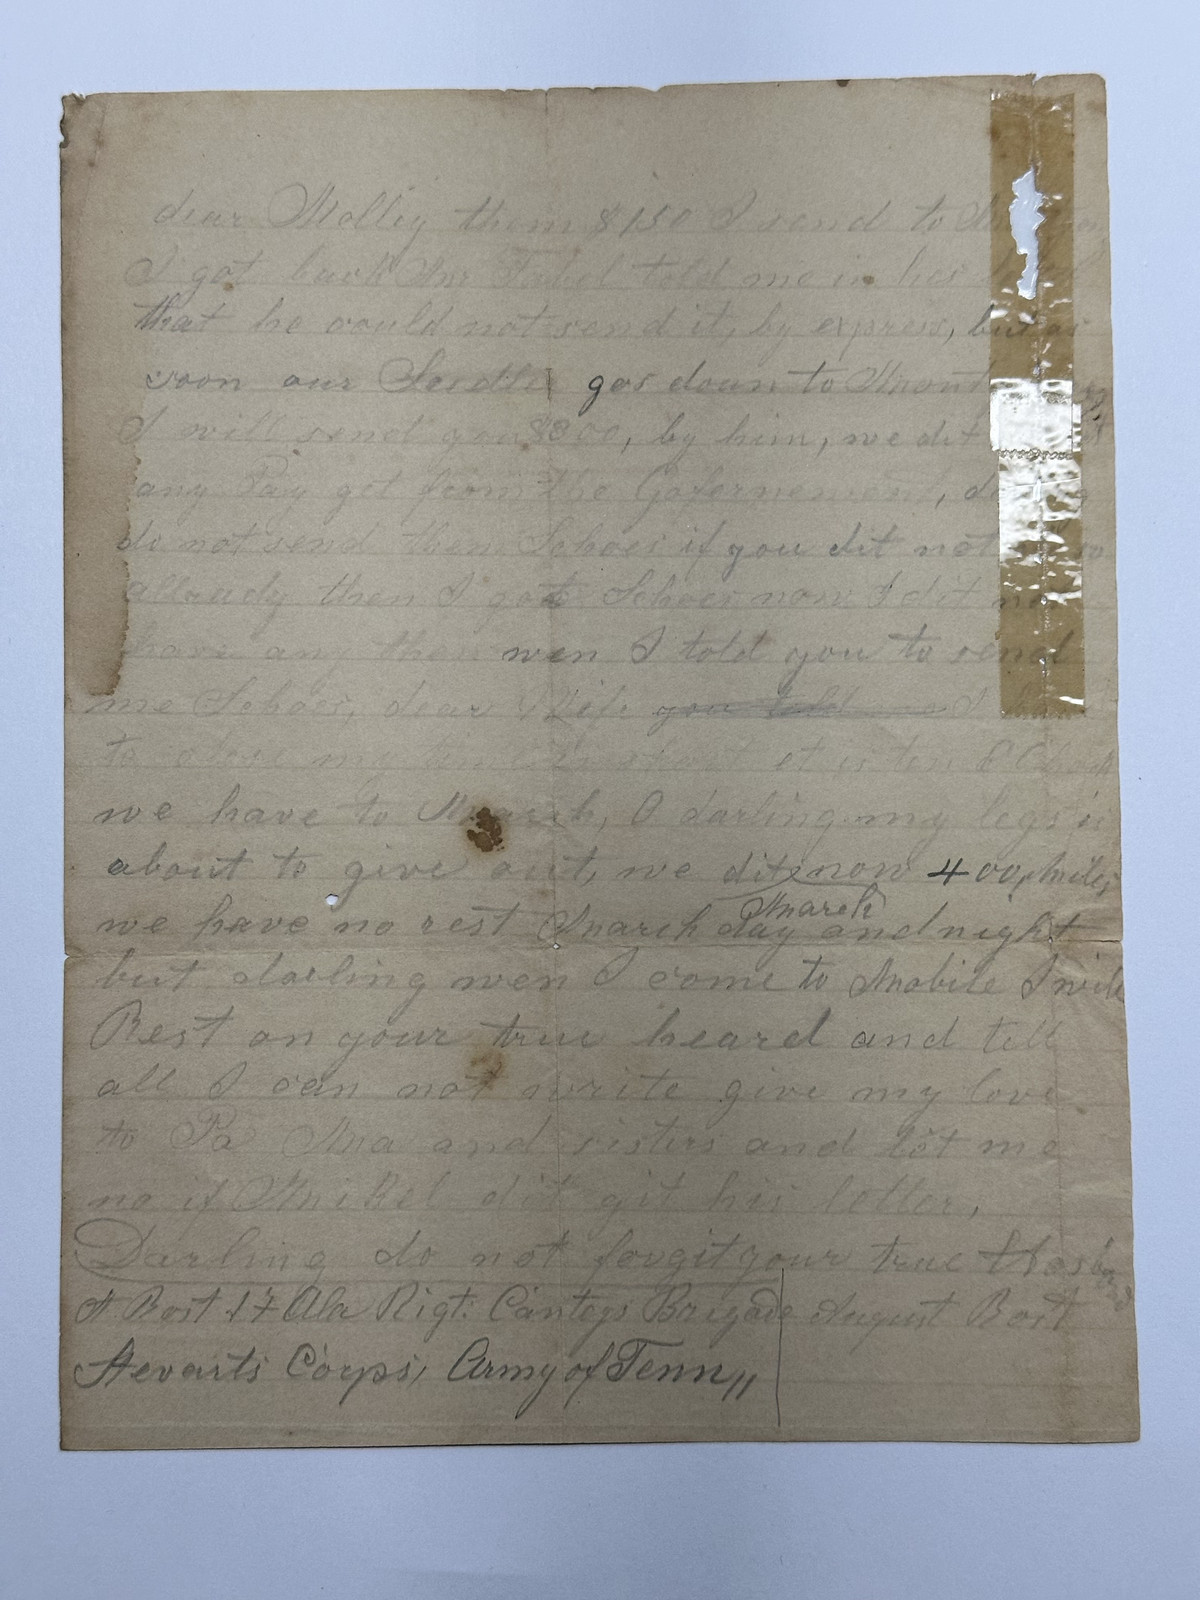 dear Mollig them $150 I send to
I got back Mr Tabel told me in his
that he could not send it, by express, but as
soon our Suddler gos down to Mont
I will send you $300, by him, we dit
any Pay git from the Gofernement,
do not send them Schoes if you dit not so
allready then I got Schoes now I dit not
have any then wen I told you to send
me Schoes, dear Wife you told me I
to close it is ten O Clock
we have to March, O darling my legs is
about to give out, we dit now 400, miles
March
we have no rest March day and night
but darling wen I come to Mobile I will
Rest on your true heard and tell
all I can not write give my love
to Pa Ma and sisters and let me
no if Mikel dit git his letter,
Darling do not forgit your true Hasband
A Bost 17 Ala Rigt: Canteys Brigade August Bost
Stevarts Corps, Army of Tenn,,